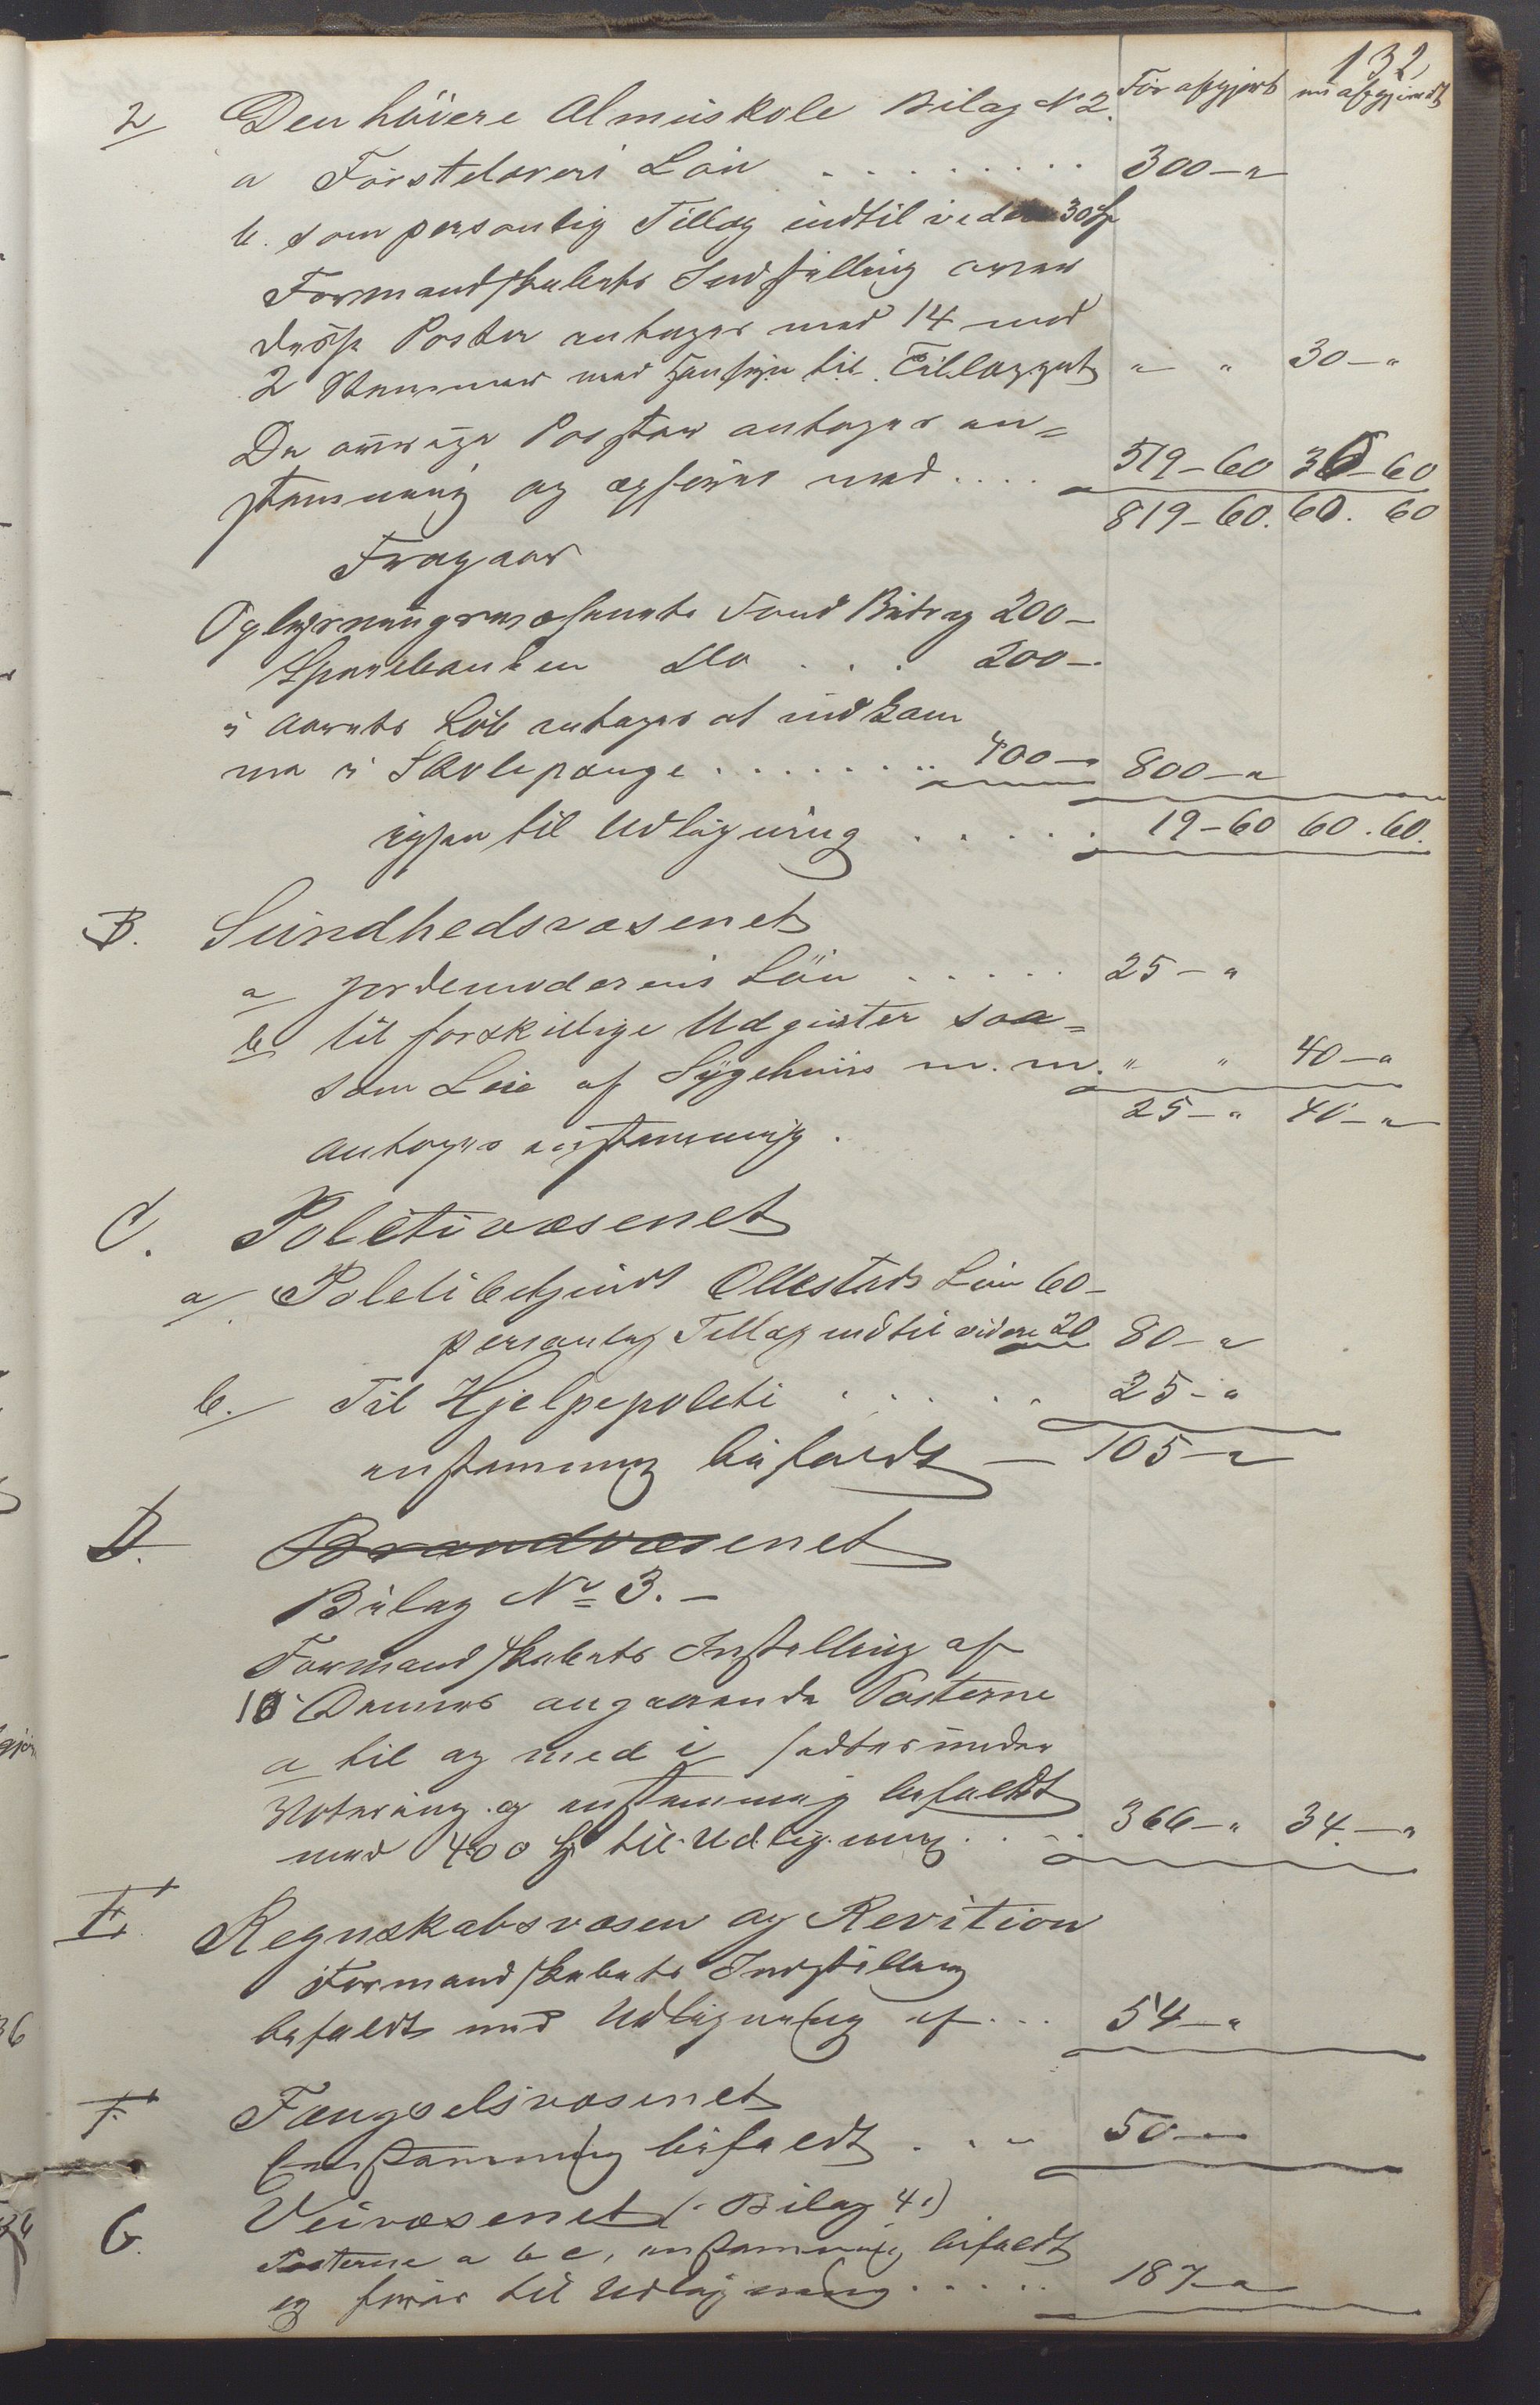 132
För afgjort nu afgjordt
2/ Den höiere Almuskole Bilag N 2.
a Förstelærers Lön . . . . . . . . . 300 – "
b. som personlig Tillæg indtil videre 30
Formandskabets Indstilling over
disse Poster antages med 14 mod
2 Stemmer med Hensyn til Tillægget " " 30 – "
De övrige Poster antages en=
stemmig og opföres med . . . . 519 – 60 30 – 60
819 – 60. 60. 60
Fragaar
Oplysningsvæsenets Fond Bidrag 200 –
Sparebanken Do . . . 200 –
i Aarets Löb antages at indkom
me i Skolepenge . . . . . . . . 400 – " 800 – "
igjen til Udligning . . . . . 19 – 60 60 . 60.
B. Sundhedsvæsenet
a Jordemoderens Lön . . . . . 25 – "
b til forskillige Udgivter saa=
som Leie af Sygehuus m. m. " " 40 – "
25 – " 40 – "
antages enstemmig .
C. Politivæsenet
a/ Politibetjent Ollestads Lön 60 –
personlig Tillæg indtil videre 20 80 – "
b./ Til Hjelpepoliti . . . . . 25 – "
enstemmig bifaldt – 105 – "
D. Brandvæsenet
Bilag No 3. –
Formandskabets Instilling af
10 Dennes angaaende Posterne
a til og med i sattes under
Votering og enstemmig bifaldt
med 400 til Udligning . . . . 366 – " 34. – "
E. Regnskabsvæsen og Revition
Formandskabets Indstilling
bifaldt med Udligning af . . . 54 – "
F. Fængselsvæsenet
Enstemmig bifaldt . . . 50 –
G. Veivæsenet (. Bilag 4.)
Posterne a b c, enstemmig bifaldt
og föres til Udligning . . . . . 187 – "